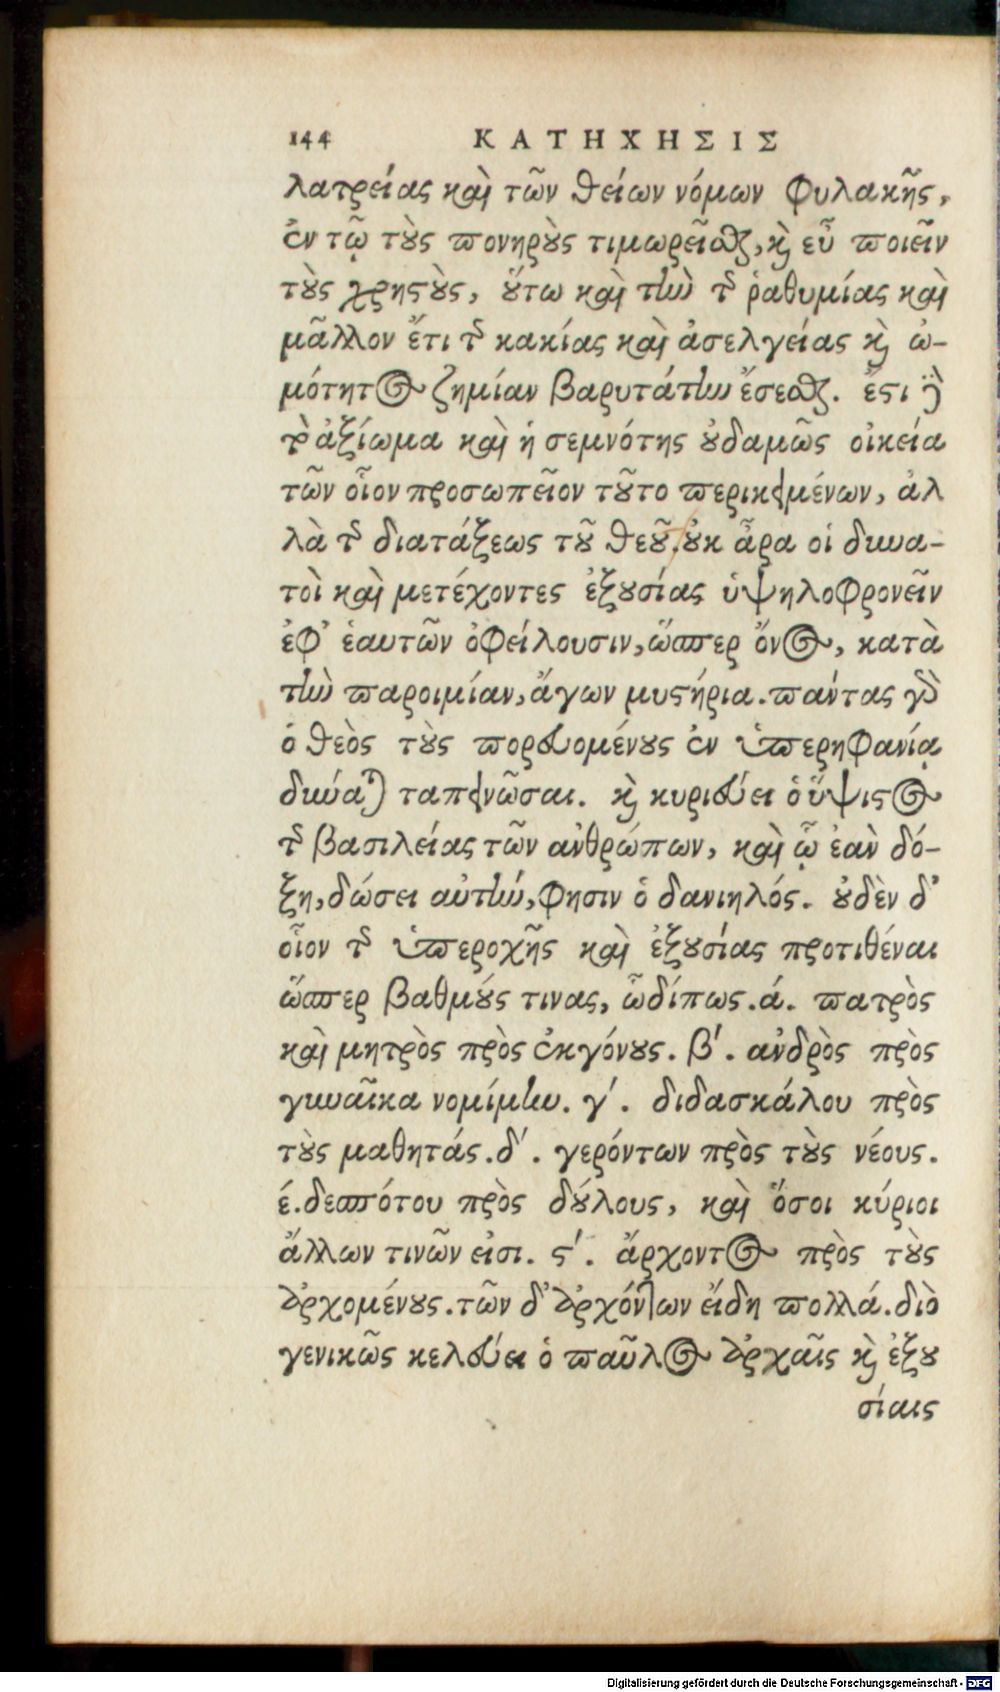 144 ΚΑΤΗΧΗΣΙΣ
λατρείας καὶ τῶν θείων νόμων φυλακῆς,
ἐν τῷ τȣ̀ς πονηρȣ̀ς τιμωρεῖσθαι, καὶ εὖ ποιεῖν
τȣ̀ς χρηστȣ̀ς, ȣ̔́τω καὶ τὴν τῆς ῥαθυμίας καὶ
μᾶλλον ἔτι τῆς κακίας καὶ ἀσελγείας καὶ ὠ-
μότητος ζημίαν βαρυτάτην ἔσεσθαι. ἔστι δὲ
τὸ ἀξίωμα καὶ ἡ σεμνότης ȣ̓δαμῶς οἰκεία
τῶν οἷον προσωπεῖον τȣ͂το περικειμένων, ἀλ
λὰ τῆς διατάξεως τȣ͂ θεȣ͂. ȣ̓κ ἆρα οἱ δυνα-
τοὶ καὶ μετέχοντες ἐξȣσίας ὑψηλοφρονεῖν
ἐφ' ἑαυτῶν ὀφείλουσιν, ὥσπερ ὄνος, κατὰ
τὴν παροιμίαν, ἄγων μυστήρια. πάντας γὰρ
ὁ θεὸς τȣ̀ς πορευομένȣς ἐν ὑπερηφανίᾳ
δύναται ταπεινῶσαι. καὶ κυριεύει ὁ ὕψιστος
τῆς βασιλείας τῶν ἀνθρώπων, καὶ ᾧ ἐὰν δό-
ξῃ, δώσει αὐτὴν, φησιν ὁ δανιηλός. ȣ̓δὲν δ'
οἷον τῆς ὑπεροχῆς καὶ ἐξȣσίας προτιθέναι
ὥσπερ βαθμȣ́ς τινας, ὧδίπως. ά. πατρὸς
καὶ μητρὸς πρὸς ἐκγόνȣς. β'. ἀνδρὸς πρὸς
γυναῖκα νομίμην. γ'. διδασκάλου πρὸς
τȣ̀ς μαθητάς. δ'. γερόντων πρὸς τȣ̀ς νέους.
έ. δεσπότου πρὸς δȣ́λους, καὶ ὅσοι κύριοι
ἄλλων τινῶν εἰσι. ϛ'. ἄρχοντος πρὸς τȣ̀ς
ἀρχομένȣς. τῶν δ' ἀρχόντων εἴδη πολλά. διὸ
γενικῶς κελεύει ὁ παῦλος ἀρχαῖς καὶ ἐξȣ
σίαις
Digitalisierung gefördert durch die Deutsche Forschungsgemeinschaft - DFG